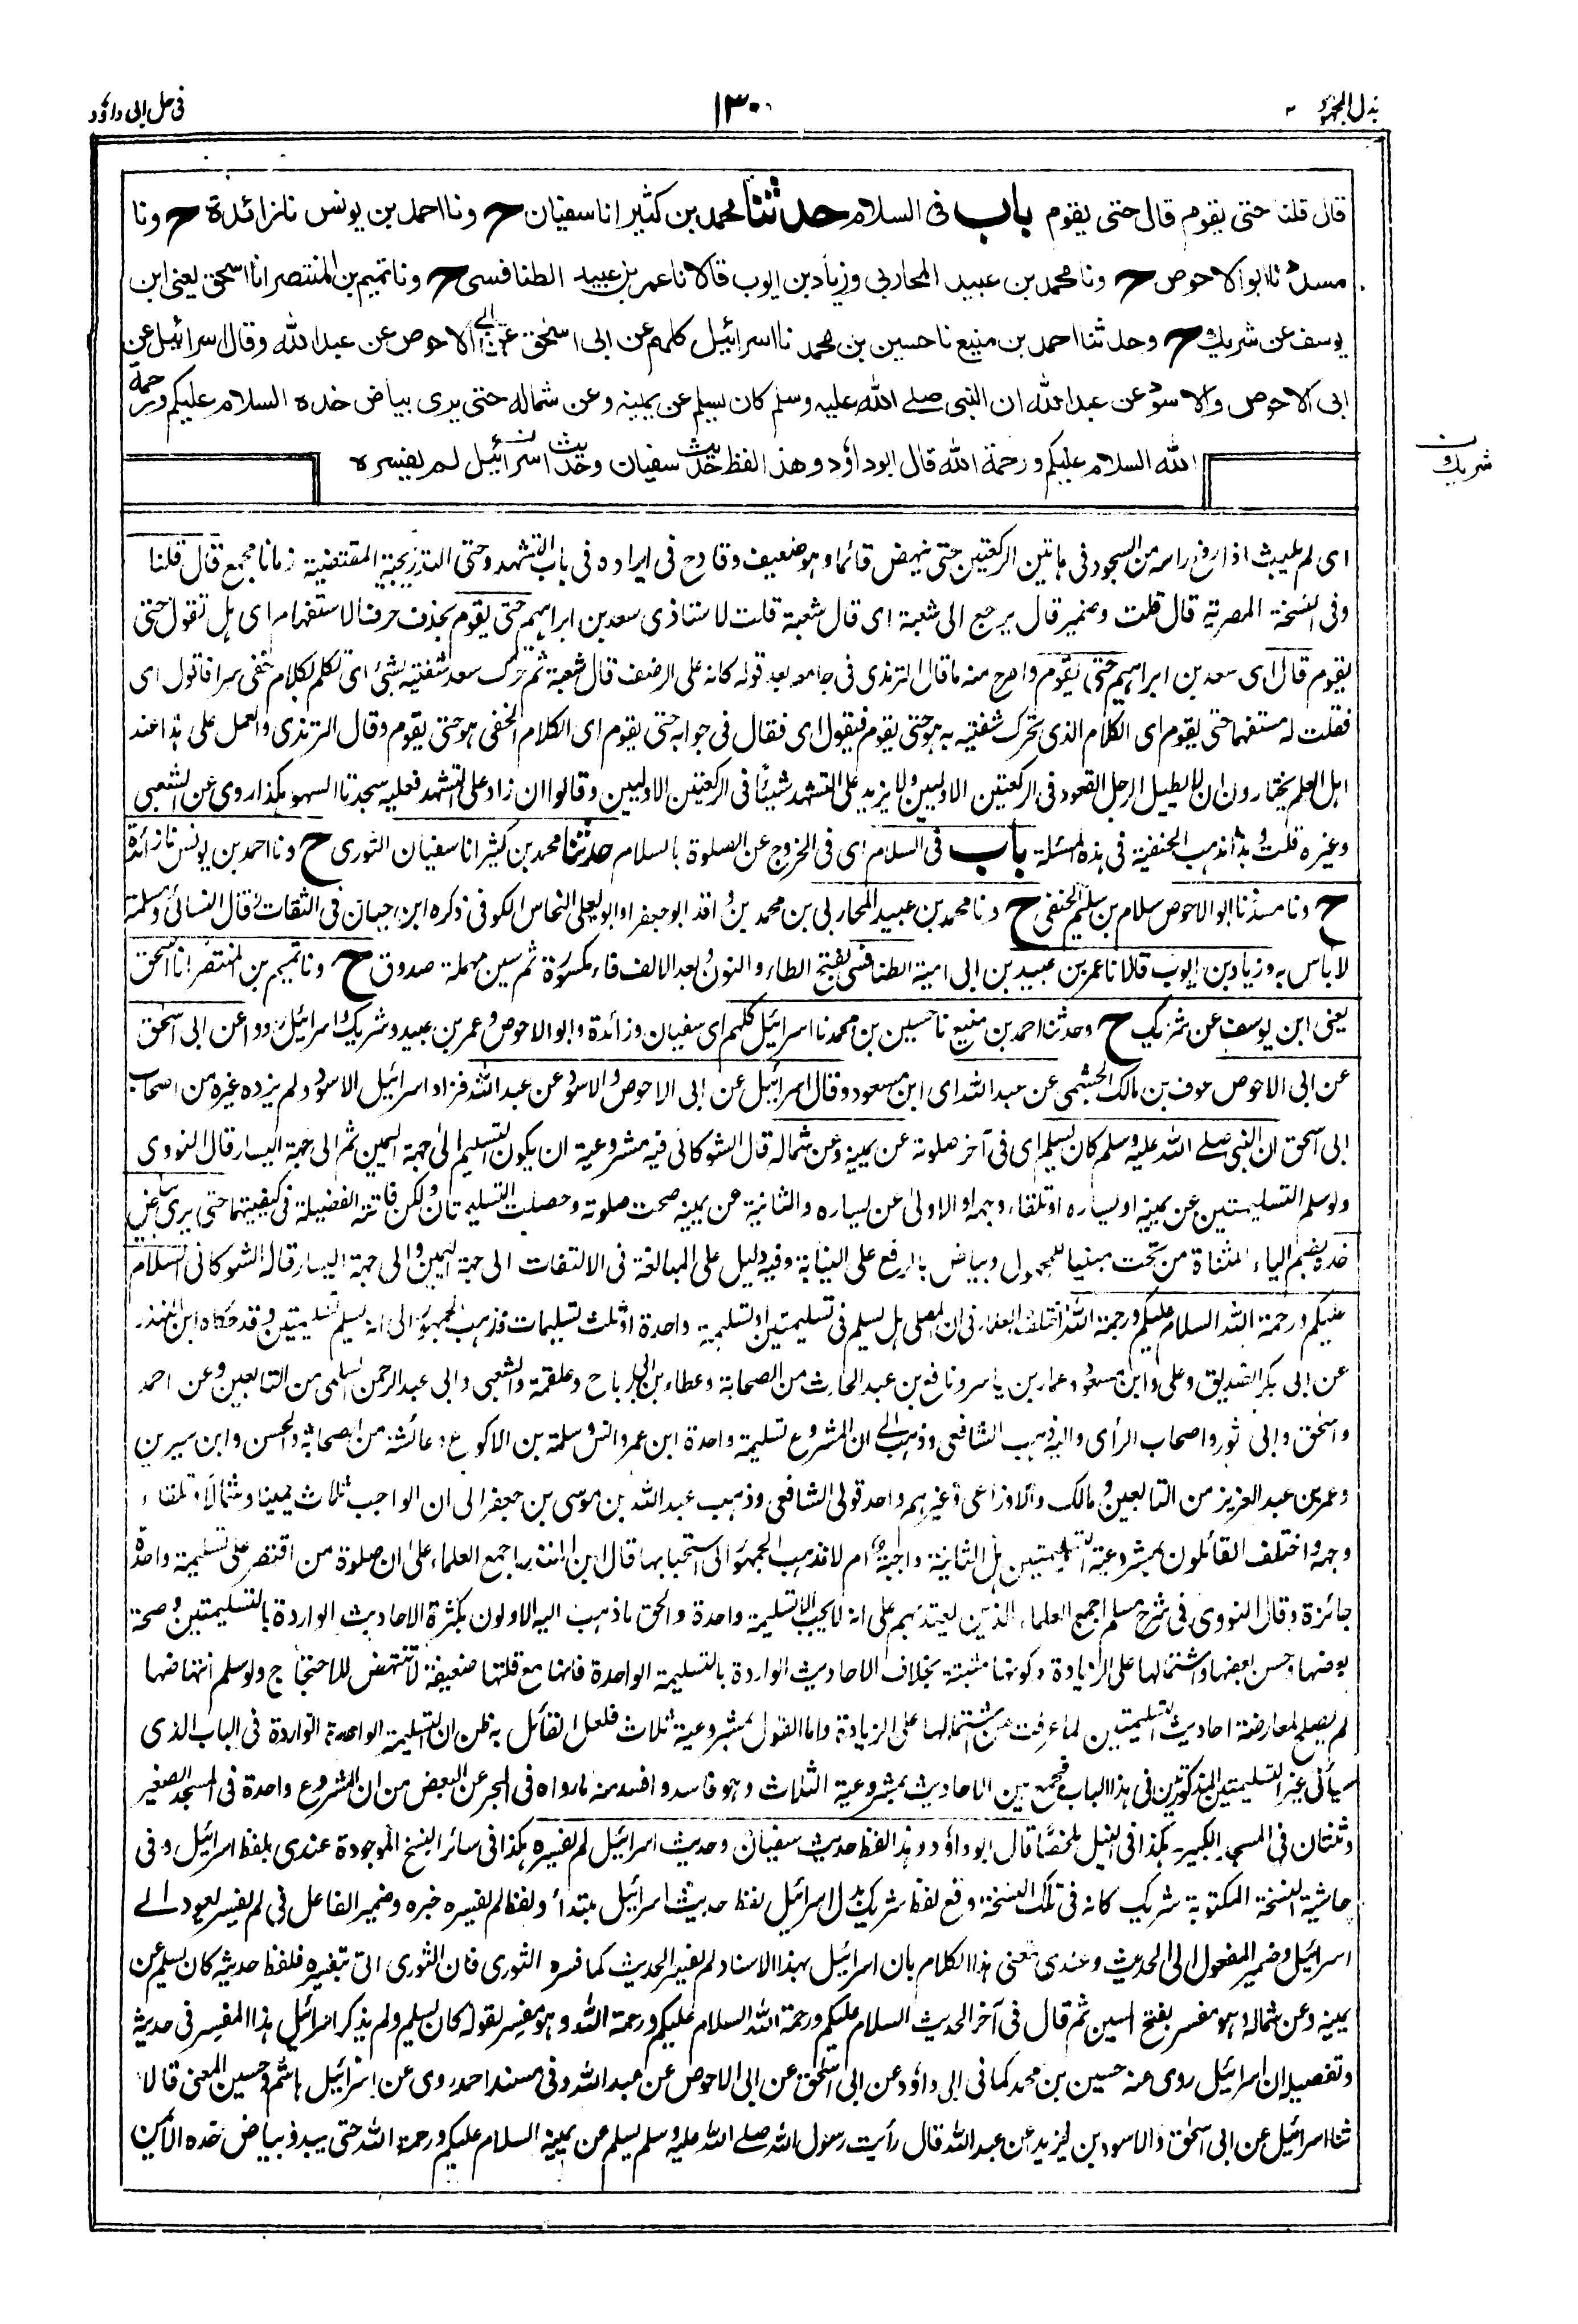 بذل المجهود
١٣٠
فی حل ابی داؤد
قال قلنا حتی یقوم قال حتی یقوم باب فی السلام حدثنا محمد بن کثیر انا سفیان ح ونا احمد بن یونس نا زائدة ح ونا
مسدد نا ابو الاحوص ح ونا محمد بن عبید المحاربی وزیاد بن ایوب قالا نا عمر بن عبید الطنافسی ح ونا تمیم بن المنتصر انا اسحق یعنی ابن
یوسف عن شریك ح وحدثنا احمد بن منیع نا حسین بن محمد نا اسرائیل کلهم عن ابی اسحق عن ابی الاحوص عن عبد الله وقال اسرائیل عن
ابی الاحوص والاسود عن عبد الله ان النبی صلے الله علیه وسلم کان یسلم عن یمینه وعن شماله حتی یری بیاض خده السلام علیکم ورحمة
الله السلام علیکم ورحمة الله قال ابو داؤد وهذا لفظ حدیث سفیان وحدیث اسرائیل لم یفسره
شریك
ای لم یلبث اذا رفع راسه من السجود فی هاتین الرکعتین حتی ینهض قائما وهو ضعیف وقادح فی ایراده فی باب التشهد وحتی التدریجیة المقتضیة زمانا مجمع قال قلنا
وفی النسخة المصریة قال قلت وضمیر قال یرجع الی شعبة ای قال شعبة قلت لاستاذی سعد بن ابراهیم حتی یقوم بحذف حرف الاستفهام ای هل تقول حتی
یقوم قال ای سعد بن ابراهیم حتی یقوم واصرح منه ما قال الترمذی فی جامعه بعد قوله کانه علی الرضف قال شعبة ثم حرک سعد شفتیه بشئ ای تکلم لکلام خفی سرا فاقول ای
فقلت له مستفهما حتی یقوم ای الکلام الذی تحرک شفتیه به هو حتی یقوم فیقول ای فقال فی جوابه حتی یقوم ای الکلام الخفی هو حتی یقوم وقال الترمذی والعمل علی هذا عند
اهل العلم یختارون ان لا یطیل الرجل القعود فی الرکعتین الاولیین ولا یزید علی التشهد شیئا فی الرکعتین الاولیین وقالوا ان زاد علی التشهد فعلیه سجدتا السهو هکذا روی عن الشعبی
وغیره قلت وهذا مذهب الحنفیة فی هذه المسئلة باب فی السلام ای فی الخروج عن الصلوة بالسلام حدثنا محمد بن کثیر انا سفیان الثوری ح ونا احمد بن یونس نا زائدة
ح ونا مسدد نا ابو الاحوص سلام بن سلیم الحنفی ح ونا محمد بن عبید المحاربی بن محمد بن واقد ابو جعفر او ابو یعلی النحاس الکوفی ذکره ابن حبان فی الثقات قال النسائی ومسلمة
لا باس به وزیاد بن ایوب قالا نا عمر بن عبید بن ابی امیة الطنافسی بفتح الطاء والنون وبعد الالف فاء مکسورة ثم سین مهملة صدوق ح ونا تمیم بن المنتصر انا اسحق
یعنی ابن یوسف عن شریک ح وحدثنا احمد بن منیع نا حسین بن محمد نا اسرائیل کلهم ای سفیان وزائدة وابو الاحوص وعمر بن عبید وشریک واسرائیل رووا عن ابی اسحق
عن ابی الاحوص عوف بن مالک الجشمی عن عبد الله ای ابن مسعود وقال اسرائیل عن ابی الاحوص والاسود عن عبد الله فزاد اسرائیل الاسود ولم یزده غیره من اصحاب
ابی اسحق ان النبی صلے الله علیه وسلم کان یسلم ای فی آخر صلوته عن یمینه وعن شماله قال الشوکانی فیه مشروعیة ان یکون التسلیم الی جهة الیمین ثم الی جهة الیسار قال النووی
ولو سلم التسلیمتین عن یمینه او یساره او تلقاء وجهه او الاولی عن یساره والثانیة عن یمینه صحت صلوته وحصلت التسلیمتان ولکن فاتته الفضیلة فی کیفیتهما حتی یری بیاض
خده بضم الیاء المثناة من تحت مبنیا للمجهول وبیاض بالرفع علی النیابة وفیه دلیل علی المبالغة فی الالتفات الی جهة الیمین والی جهة الیسار قاله الشوکانی السلام
علیکم ورحمة الله السلام علیکم ورحمة الله اختلف العلماء فی ان المصلی هل یسلم فی تسلیمتین او تسلیمة واحدة او ثلث تسلیمات فذهب الجمهور الی انه یسلم تسلیمتین وقد حکاه ابن المنذر
عن ابی بکر الصدیق وعلی وابن مسعود وعمار بن یاسر ونافع بن عبد الحارث من الصحابة وعطاء بن ابی رباح وعلقمة والشعبی وابی عبد الرحمن السلمی من التابعین وعن احمد
واسحق وابی ثور واصحاب الرأی والیه ذهب الشافعی وذهب الی ان المشروع تسلیمة واحدة ابن عمر وانس وسلمة بن الاکوع وعائشة من الصحابة والحسن وابن سیرین
وعمر بن عبد العزیز من التابعین ومالک والاوزاعی وغیرهم واحد قولی الشافعی وذهب عبد الله بن موسی بن جعفر الی ان الواجب ثلاث یمینا وشمالا وتلقاء
وجهه واختلف القائلون بمشروعیة التسلیمتین هل الثانیة واجبة ام لا فذهب الجمهور الی استحبابها قال ابن المنذر اجمع العلماء علی ان صلوة من اقتصر علی تسلیمة واحدة
جائزة وقال النووی فی شرح مسلم اجمع العلماء الذین یعتد بهم علی انه لا یجب الا تسلیمة واحدة والحق ما ذهب الیه الاولون بکثرة الاحادیث الواردة بالتسلیمتین وصحة
بعضها وحسن بعضها واشتمالها علی الزیادة وکونها مثبتة بخلاف الاحادیث الواردة بالتسلیمة الواحدة فانها مع قلتها ضعیفة لا تنتهض للاحتجاج ولو سلم انتهاضها
لم یصلح لمعارضة احادیث التسلیمتین لما عرفت من اشتمالها علی الزیادة واما القول بمشروعیة ثلاث فلعل القائل به ظن ان التسلیمة الواحدة الواردة فی الباب الذی
سیأتی غیر التسلیمتین المذکورتین فی هذا الباب فجمع بین الاحادیث بمشروعیة الثلاث وهو فاسد وافسد منه ما رواه فی البحر عن البعض من ان المشروع واحدة فی المسجد الصغیر
وثنتان فی المسجد الکبیر۔ هکذا فی النیل ملخصا قال ابو داؤد وهذا لفظ حدیث سفیان وحدیث اسرائیل لم یفسره هکذا فی سائر النسخ الموجودة عندی بلفظ اسرائیل وفی
حاشیة النسخة المکتوبة شریک کانه فی تلک النسخة وقع لفظ شریک بدل اسرائیل لفظ حدیث اسرائیل مبتدأ ولفظ لم یفسره خبره وضمیر الفاعل فی لم یفسر یعود الے
اسرائیل وضمیر المفعول الی الحدیث وعندی معنی هذا الکلام بان اسرائیل بهذا الاسناد لم یفسر الحدیث کما فسره الثوری فان الثوری اتی بتفسیره فلفظ حدیثه کان یسلم عن
یمینه وعن شماله وهو مفسر بفتح السین ثم قال فی آخر الحدیث السلام علیکم ورحمة الله السلام علیکم ورحمة الله وهو مفسر لقوله کان یسلم ولم یذکر اسرائیل هذا المفسر فی حدیثه
وتفصیله ان اسرائیل روی عنه حسین بن محمد کما فی ابی داؤد عن ابی اسحق عن ابی الاحوص عن عبد الله وفی مسند احمد روی عن اسرائیل هاشم وحسین المعنی قالا
ثنا اسرائیل عن ابی اسحق والاسود بن یزید عن عبد الله قال رأیت رسول الله صلے الله علیه وسلم یسلم عن یمینه السلام علیکم ورحمة الله حتی یبدو بیاض خده الایمن